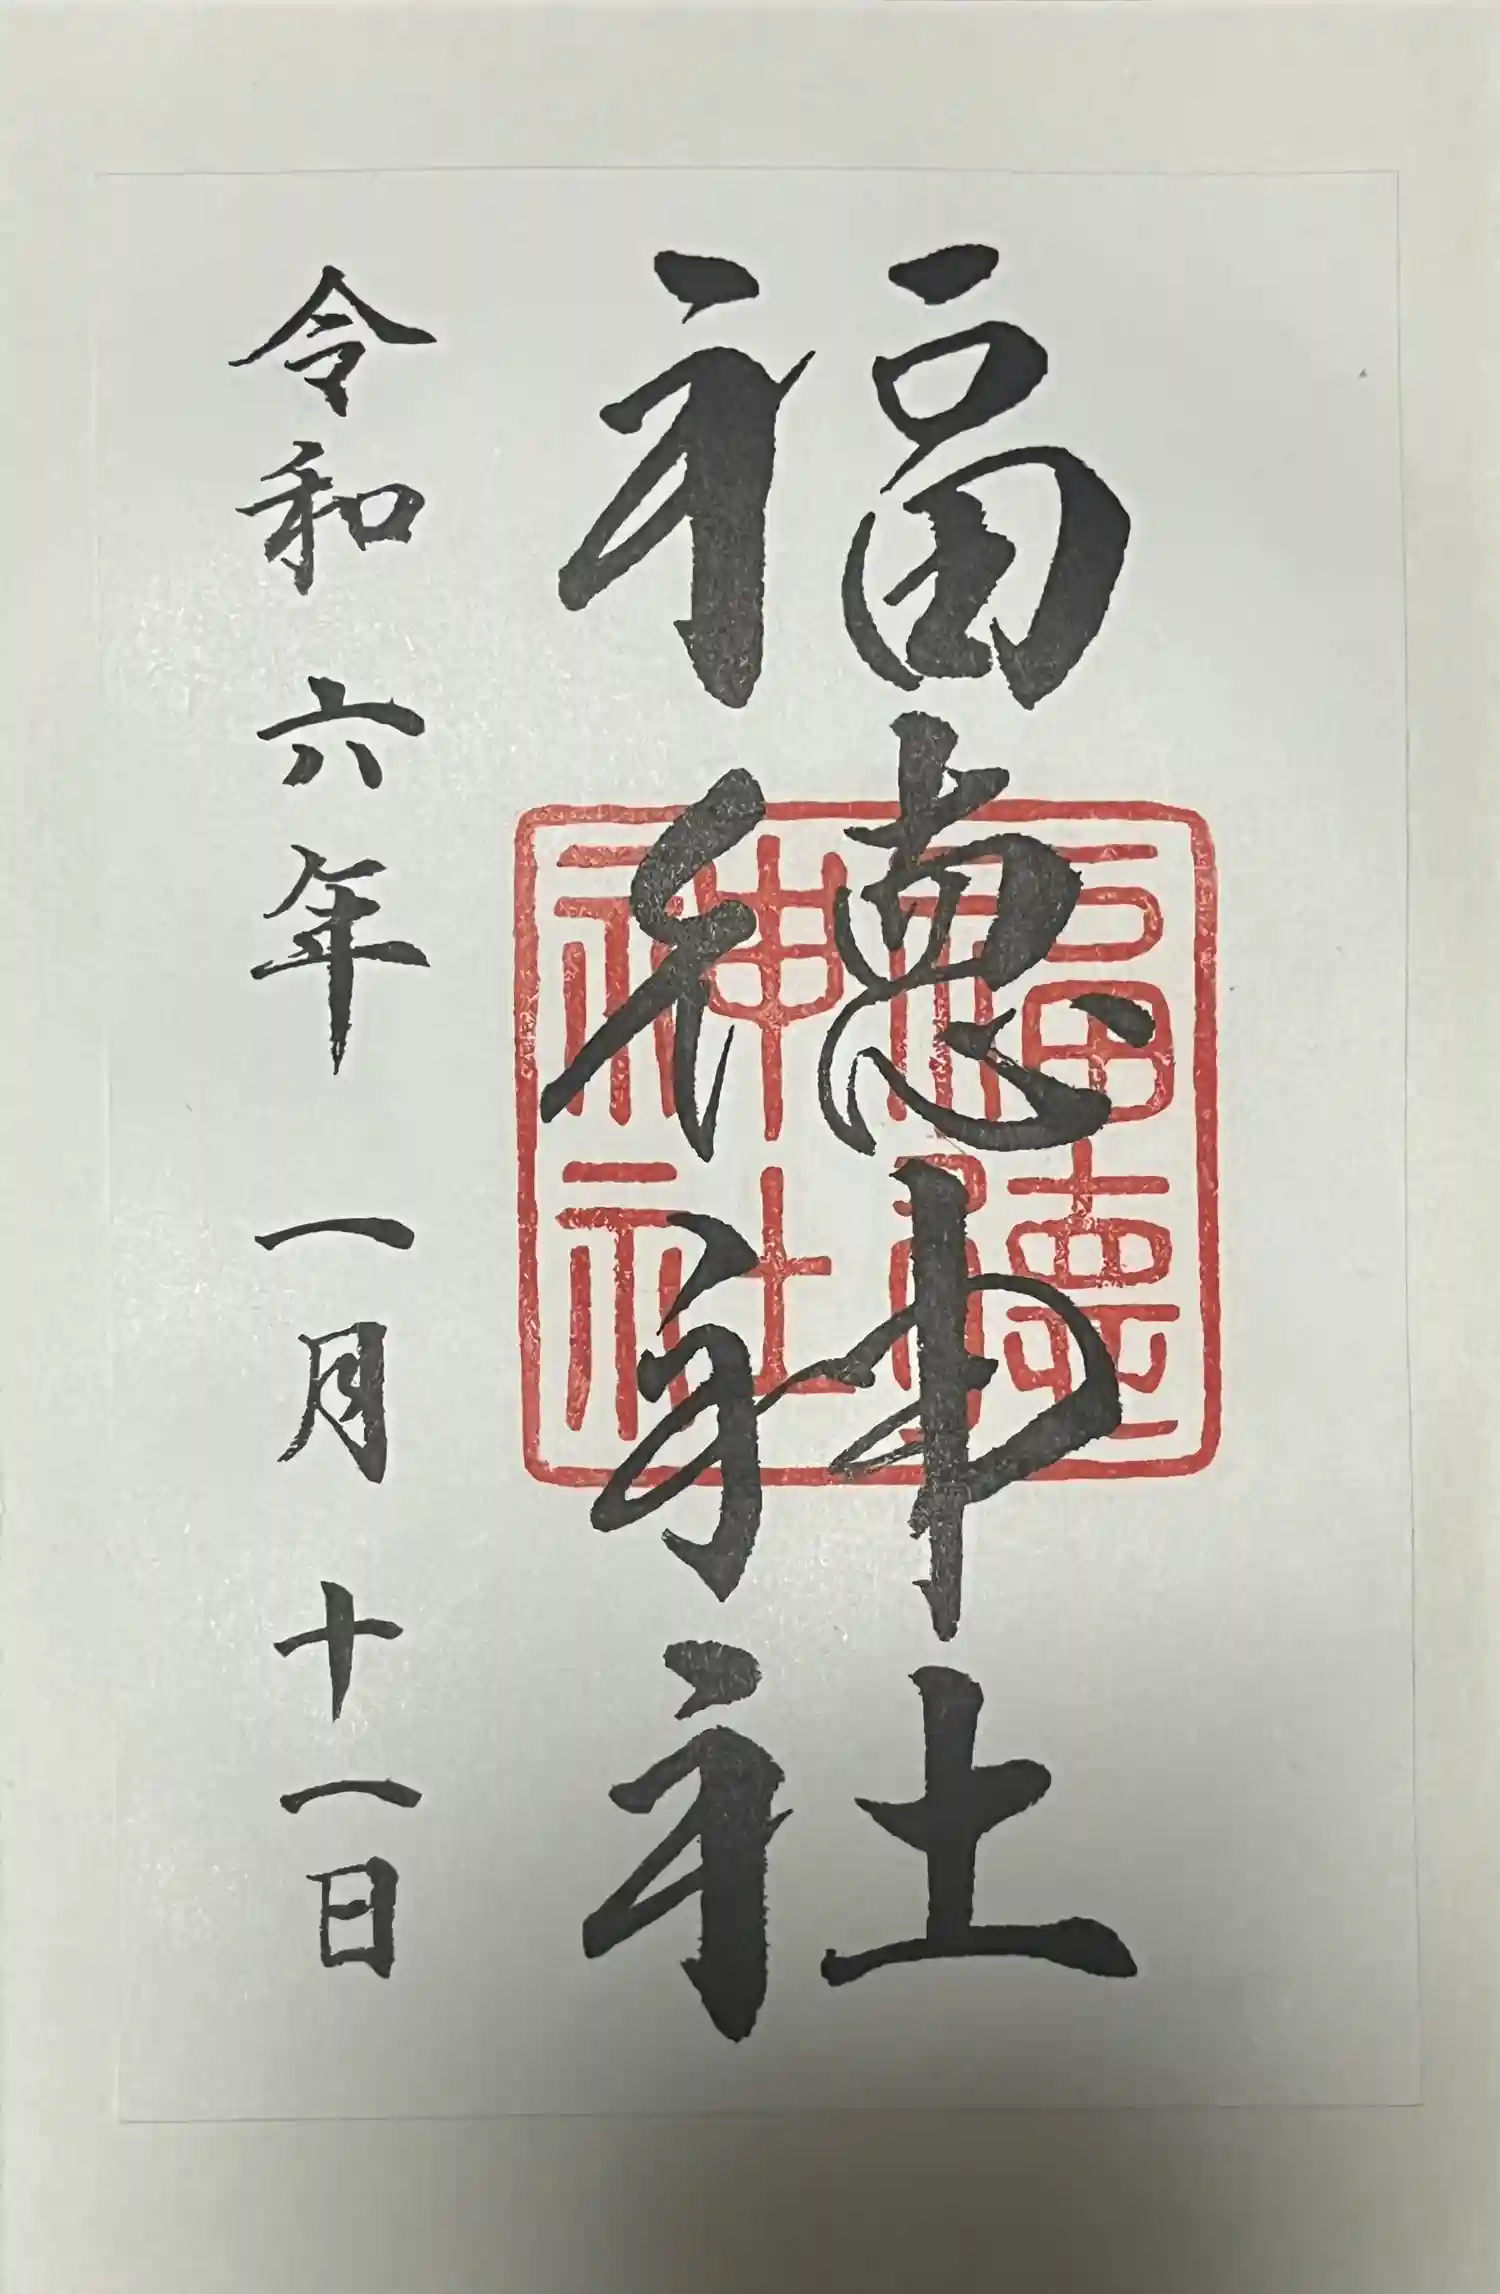 福徳神社
福徳神社
令和六年一月十一日